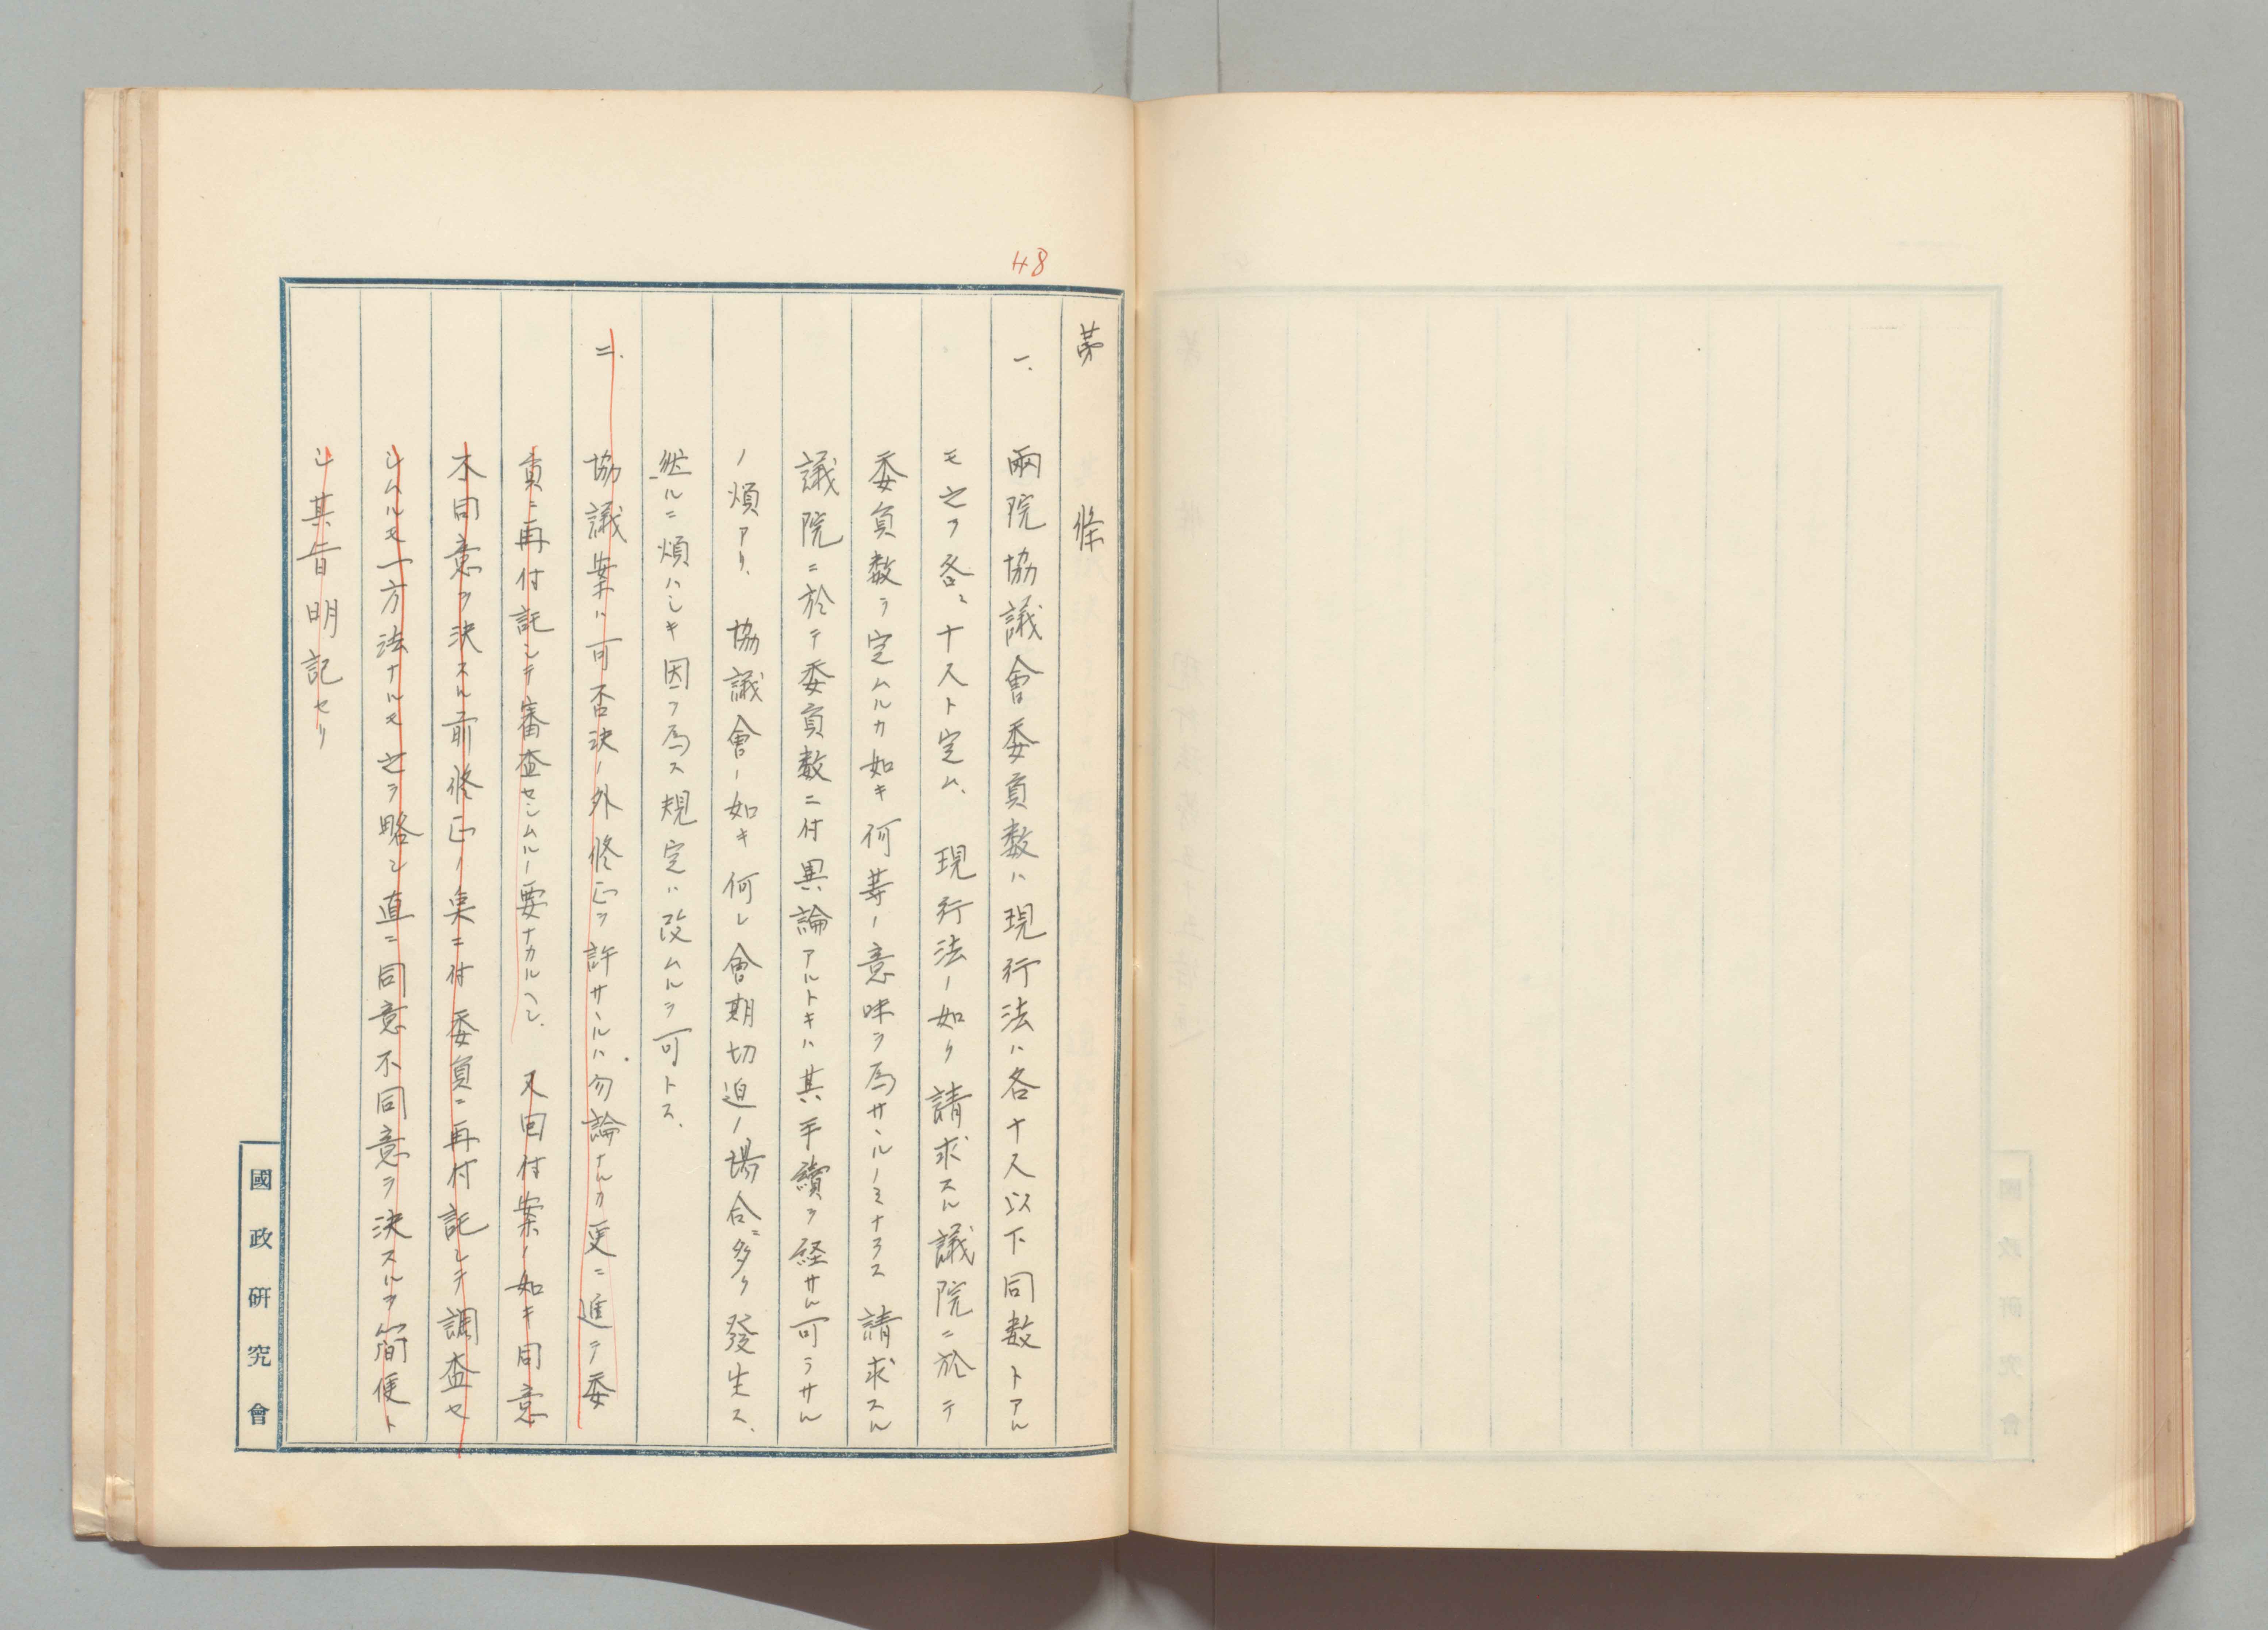 48
第　　條
一、兩院協議會委員数ハ現行法ハ各十人以下同数トアル
モ之ヲ各〻十人ト定ム、現行法ノ如ク請求スル議院ニ於テ
委員数ヲ定ムルカ如キ何等ノ意味ヲ為サヽルノミナラス請求スル
議院ニ於テ委員数ニ付異論アルトキハ其手續ヲ経サル可ラサル
ノ煩アリ、協議會ノ如キ何レ會期切迫ノ場合ニ多ク發生ス、
然ルニ煩ハシキ因ヲ為ス規定ハ改ムルヲ可トス、
二、協議案ハ可否決ノ外修正ヲ許サヽルハ勿論ナルカ更ニ進テ委
員ニ再付託シテ審査セシムルノ要ナカルヘシ、又回付案ノ如キ同意
不同意ヲ決スル前修正ノ
ニ付委員ニ再付託シテ調査セ
シムルモ一方法ナルモ之ヲ略シ直ニ同意不同意ヲ決スルヲ簡便ト
シ其旨明記セリ
國政研究會